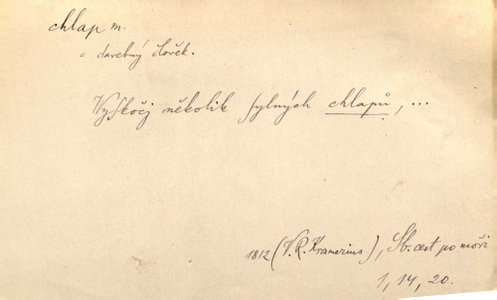 chlap m.
= darebný člověk.
Vyskočj několik sylných chlapů, ...
1812 (V. R. Kramerius), Sb. cest po moři
1, 14, 20.